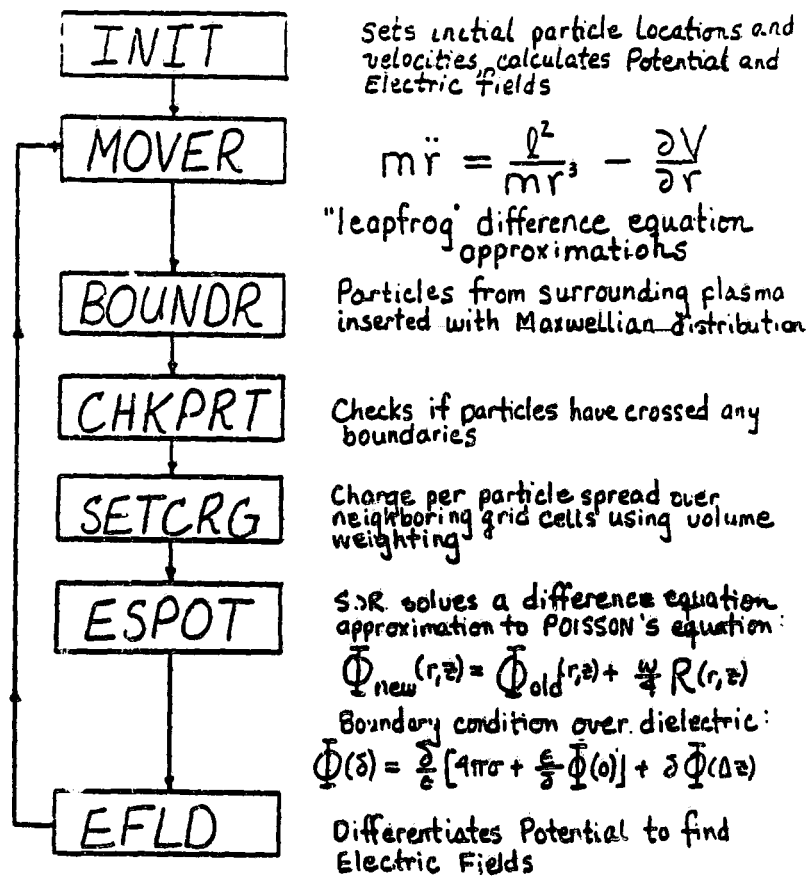 INIT
Sets initial particle locations and
velocities, calculates Potential and
Electric fields
MOVER
m r̈ = ℓ²/mr³ − ∂V/∂r
"leapfrog" difference equation
approximations
BOUNDR
Particles from surrounding plasma
inserted with Maxwellian distribution
CHKPRT
Checks if particles have crossed any
boundaries
SETCRG
Charge per particle spread over
neighboring grid cells using volume
weighting
ESPOT
S.O.R. solves a difference equation
approximation to POISSON's equation:
Φnew(r,z) = Φold(r,z) + ω/4 R(r,z)
Boundary condition over dielectric:
Φ(δ) = δ/ε [4πσ + ε/δ Φ(0)] + δ Φ(Δz)
EFLD
Differentiates Potential to find
Electric Fields